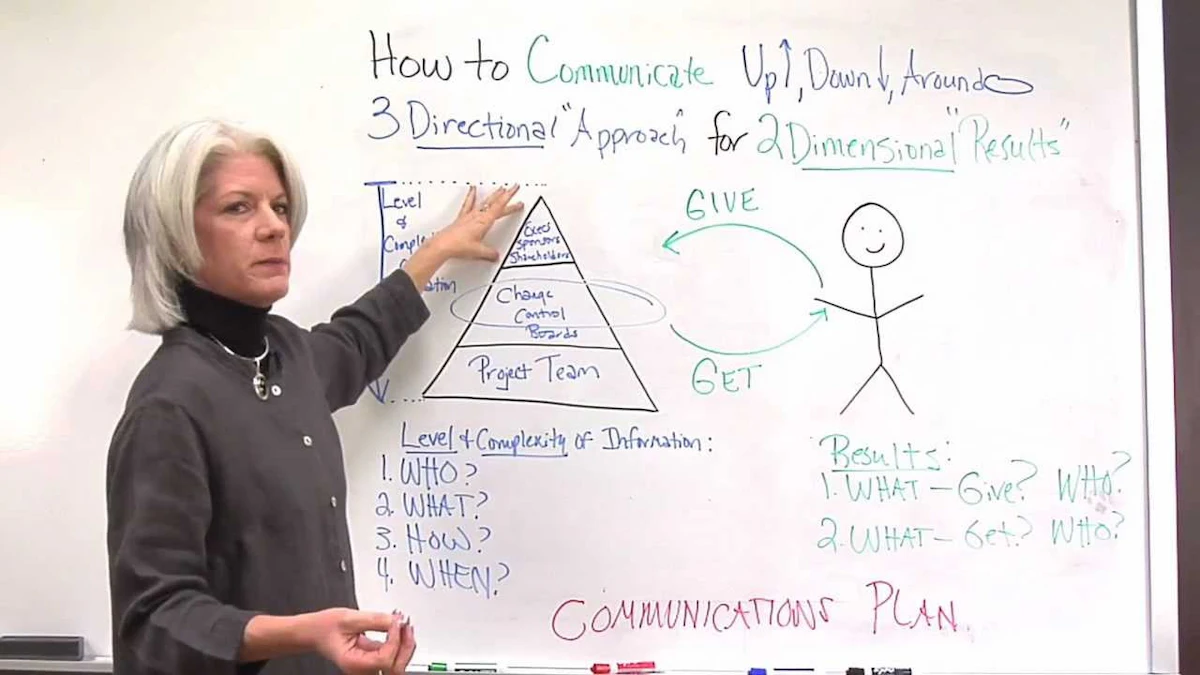 How to Communicate Up↑, Down↓, Around
3 Directional "Approach" for 2 Dimensional "Results"
Level
&
Exec
Sponsors
Shareholders
Change
Control
Boards
Project Team
GIVE
GET
Level & Complexity of Information:
1. WHO?
2. WHAT?
3. HOW?
4. WHEN?
Results:
1. WHAT - Give? WHO?
2. WHAT - Get? WHO?
COMMUNICATIONS PLAN.